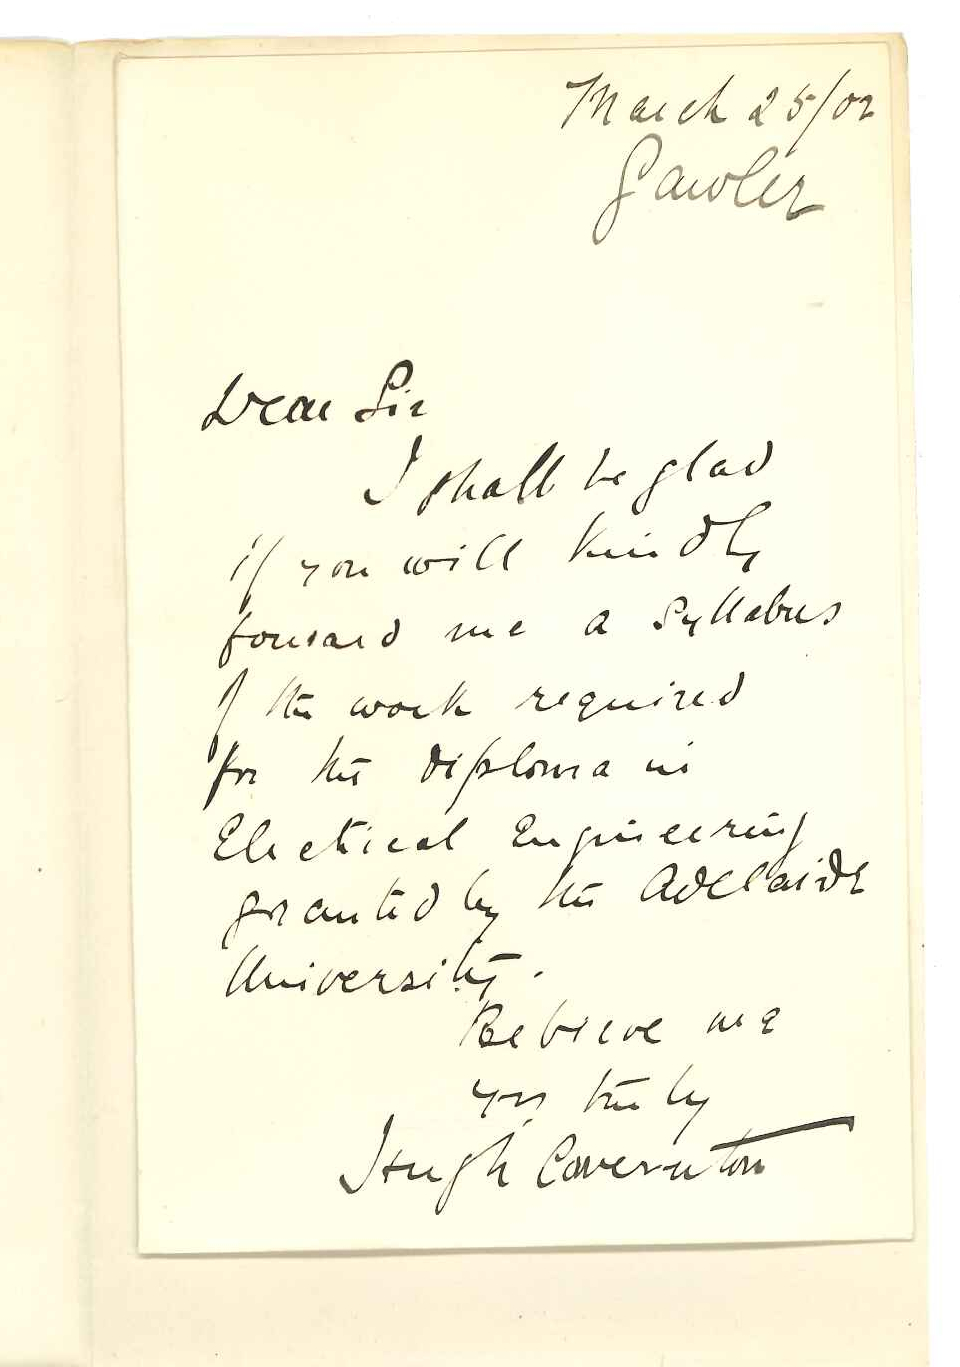 March 25/02
Gawler
Dear Sir
I shall be glad
if you will kindly
forward me a Syllabus
of the work required
for the diploma in
Electrical Engineering
granted by the Adelaide
University.
Believe me
yrs truly
Hugh Cavernton